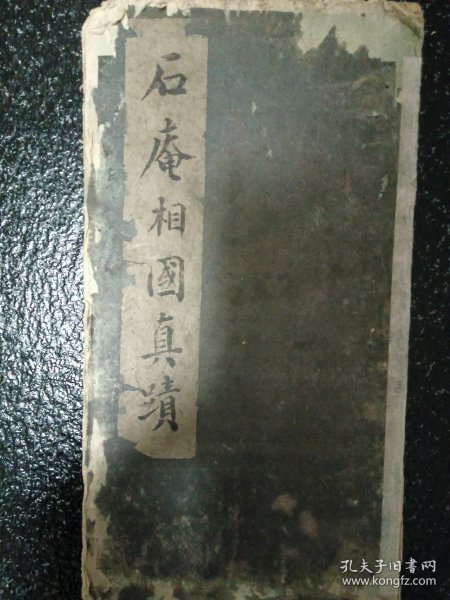 石庵相國真蹟
孔夫子旧书网
www.kongfz.com